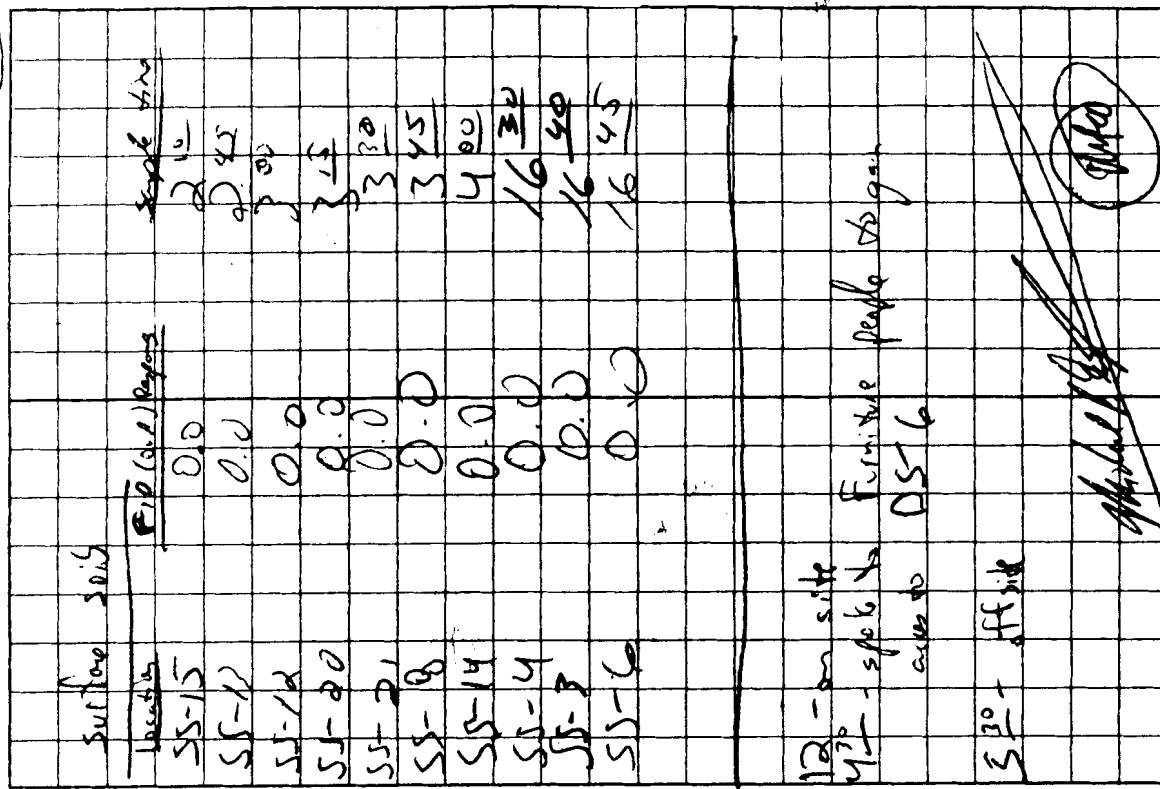 Surface Soils
Location FID (out) Sample time
SS-15 0.0 2 10
SS-17 0.0 2 45
SS-12 0.0 3 00
SS-20 0.0 3 15
SS-21 0.0 3 30
SS-8 0.0 3 45
SS-14 0.0 4 00
SS-4 0.0 16 30
SS-3 0.0 16 40
SS-6 0.0 16 45
12 - on site
4 30 - spoke to Furniture people to gain
access to DS-6
5 30 - offsite